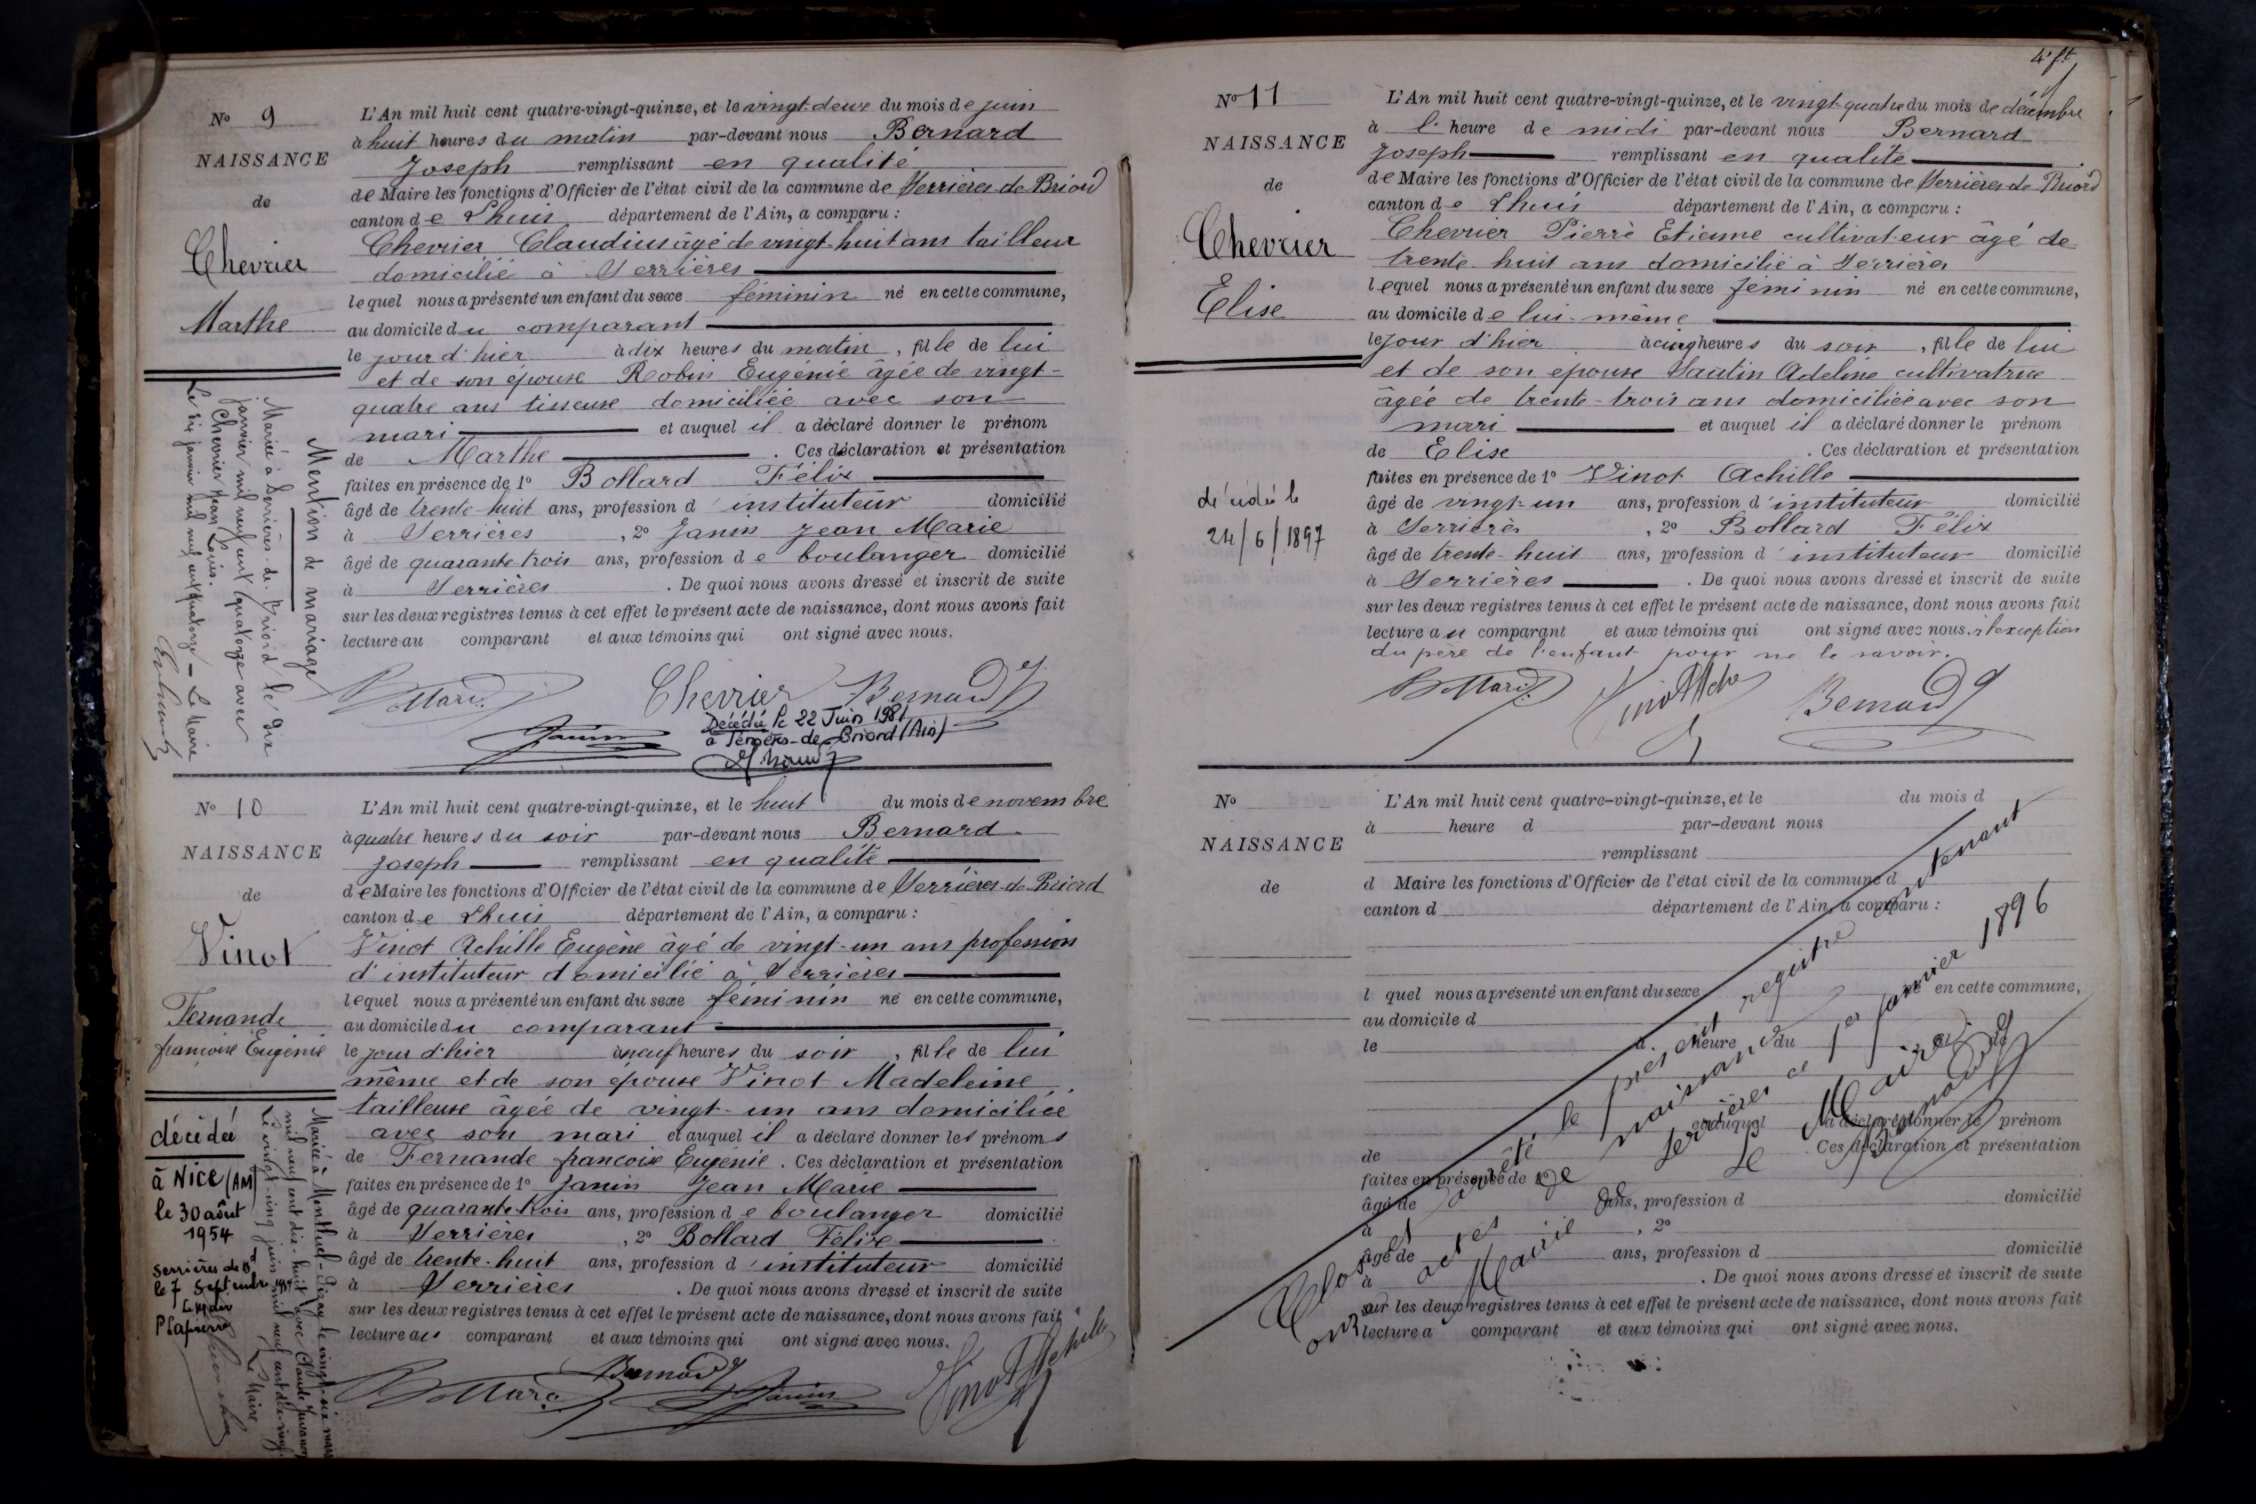 4e ft
No 9
NAISSANCE
de
Chevrier
Marthe
L'An mil huit cent quatre-vingt-quinze, et le vingt-deux du mois de juin
à huit heures du matin par-devant nous Bernard
Joseph remplissant en qualité
de Maire les fonctions d'Officier de l'état civil de la commune de Serrières de Briord
canton de Lhuis département de l'Ain, a comparu :
Chevrier Claudius âgé de vingt-huit ans tailleur
domicilié à Serrières
lequel nous a présenté un enfant du sexe féminin né en cette commune,
au domicile du comparant
le jour d'hier à dix heures du matin, fille de lui
et de son épouse Robin Eugénie âgée de vingt-
quatre ans tisseuse domiciliée avec son
mari et auquel il a déclaré donner le prénom
de Marthe . Ces déclaration et présentation
faites en présence de 1o Bollard Félix
âgé de trente-huit ans, profession d'instituteur domicilié
à Serrières , 2o Janin Jean Marie
âgé de quarante trois ans, profession de boulanger domicilié
à Serrières . De quoi nous avons dressé et inscrit de suite
sur les deux registres tenus à cet effet le présent acte de naissance, dont nous avons fait
lecture au comparant et aux témoins qui ont signé avec nous.
Bollard Chevrier Bernard
Janin
Décédée le 22 Juin 1981
à Serrières-de-Briord (Ain)
Mention de mariage
Mariée à Serrières-de-Briord le dix
janvier mil neuf cent quatorze avec
Chevrier Jean Louis.
Le dix janvier mil neuf cent quatorze - Le Maire
No 10
NAISSANCE
de
Vinot
Fernande
françoise Eugénie
L'An mil huit cent quatre-vingt-quinze, et le huit du mois de novembre
à quatre heures du soir par-devant nous Bernard
Joseph remplissant en qualité
de Maire les fonctions d'Officier de l'état civil de la commune de Serrières de Briord
canton de Lhuis département de l'Ain, a comparu :
Vinot Achille Eugène âgé de vingt-un ans profession
d'instituteur domicilié à Serrières
lequel nous a présenté un enfant du sexe féminin né en cette commune,
au domicile du comparant
le jour d'hier à neuf heures du soir, fille de lui
même et de son épouse Vinot Madeleine
tailleuse âgée de vingt-un ans domiciliée
avec son mari et auquel il a déclaré donner les prénoms
de Fernande françoise Eugénie . Ces déclaration et présentation
faites en présence de 1o Janin Jean Marie
âgé de quarante trois ans, profession de boulanger domicilié
à Serrières , 2o Bollard Félix
âgé de trente-huit ans, profession d'instituteur domicilié
à Serrières . De quoi nous avons dressé et inscrit de suite
sur les deux registres tenus à cet effet le présent acte de naissance, dont nous avons fait
lecture au comparant et aux témoins qui ont signé avec nous.
Bollard Bernard Janin Vinot Achille
décédée
à Nice (AM)
le 30 août
1954
Serrières de Bd
le 7 Septembre 1954
Le Maire
P Lapierre
Mariée à Montluel - le vingt-six mars
mil neuf cent dix-huit avec Claude
Le vingt-cinq juin mil neuf cent dix-
Le Maire
No 11
NAISSANCE
de
Chevrier
Elise
L'An mil huit cent quatre-vingt-quinze, et le vingt-quatre du mois de décembre
à l' heure de midi par-devant nous Bernard
Joseph remplissant en qualité
de Maire les fonctions d'Officier de l'état civil de la commune de Serrières de Briord
canton de Lhuis département de l'Ain, a comparu :
Chevrier Pierre Etienne cultivateur âgé de
trente-huit ans domicilié à Serrières
lequel nous a présenté un enfant du sexe féminin né en cette commune,
au domicile de lui-même
le jour d'hier à cinq heures du soir, fille de lui
et de son épouse Sautin Adeline cultivatrice
âgée de trente-trois ans domiciliée avec son
mari et auquel il a déclaré donner le prénom
de Elise . Ces déclaration et présentation
faites en présence de 1o Vinot Achille
âgé de vingt-un ans, profession d'instituteur domicilié
à Serrières , 2o Bollard Félix
âgé de trente-huit ans, profession d'instituteur domicilié
à Serrières . De quoi nous avons dressé et inscrit de suite
sur les deux registres tenus à cet effet le présent acte de naissance, dont nous avons fait
lecture au comparant et aux témoins qui ont signé avec nous. à l'exception
du père de l'enfant pour ne le savoir.
Bollard Vinot Ache Bernard
décédée le
24/6/1897
No
NAISSANCE
de
L'An mil huit cent quatre-vingt-quinze, et le du mois d
à heure d par-devant nous
remplissant
d Maire les fonctions d'Officier de l'état civil de la commune d
canton d département de l'Ain, a comparu :
l quel nous a présenté un enfant du sexe né en cette commune,
au domicile d
le à heure du
et auquel a déclaré donner le prénom
de . Ces déclaration et présentation
faites en présence de 1o
âgé de ans, profession d domicilié
à , 2o
âgé de ans, profession d domicilié
à . De quoi nous avons dressé et inscrit de suite
sur les deux registres tenus à cet effet le présent acte de naissance, dont nous avons fait
lecture a comparant et aux témoins qui ont signé avec nous.
Clos et arrêté le présent registre contenant
onze actes de naissance
Mairie de Serrières ce 1er janvier 1896
Le Maire
Bernard